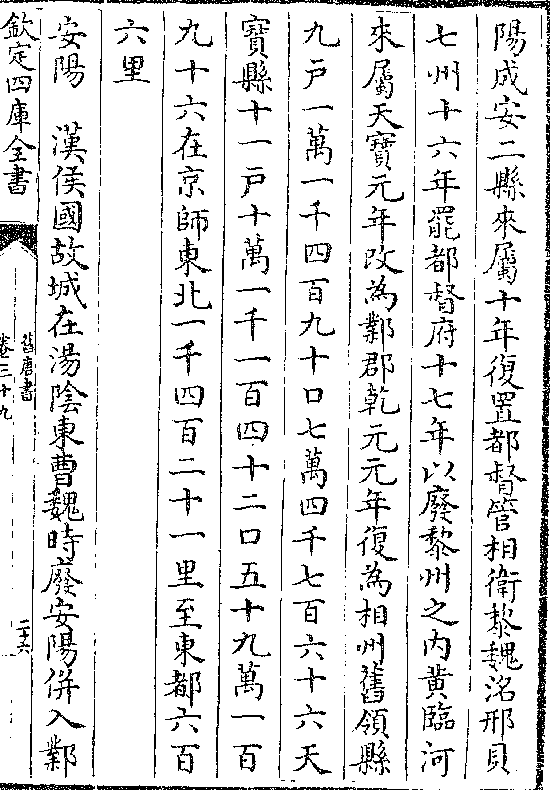 陽成安二縣來屬十年復置都督管相衛黎魏洺邢貝
七州十六年罷都督府十七年以廢黎州之内黄臨河
來屬天寶元年改為鄴郡乾元元年復為相州舊領縣
九戸一萬一千四百九十口七萬四千七百六十六天
寶縣十一戸十萬一千一百四十二口五十九萬一百
九十六在京師東北一千四百二十一里至東都六百
六里
安陽　漢侯國故城在湯陰東曹魏時廢安陽併入鄴
欽定四庫全書
舊唐書
卷三十九
二十六